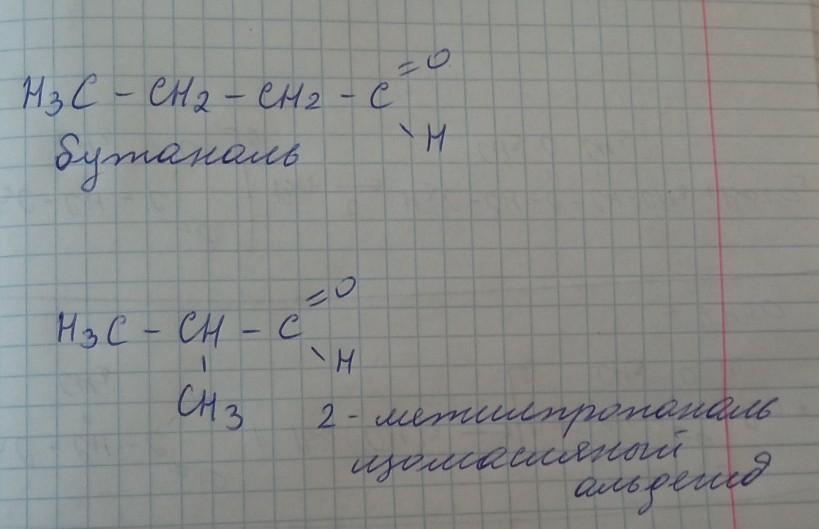 H3C - CH2 - CH2 - C
=O
\H
бутаналь
H3C - CH - C
=O
\H
CH3
2-метилпропаналь
изомасляный
альдегид